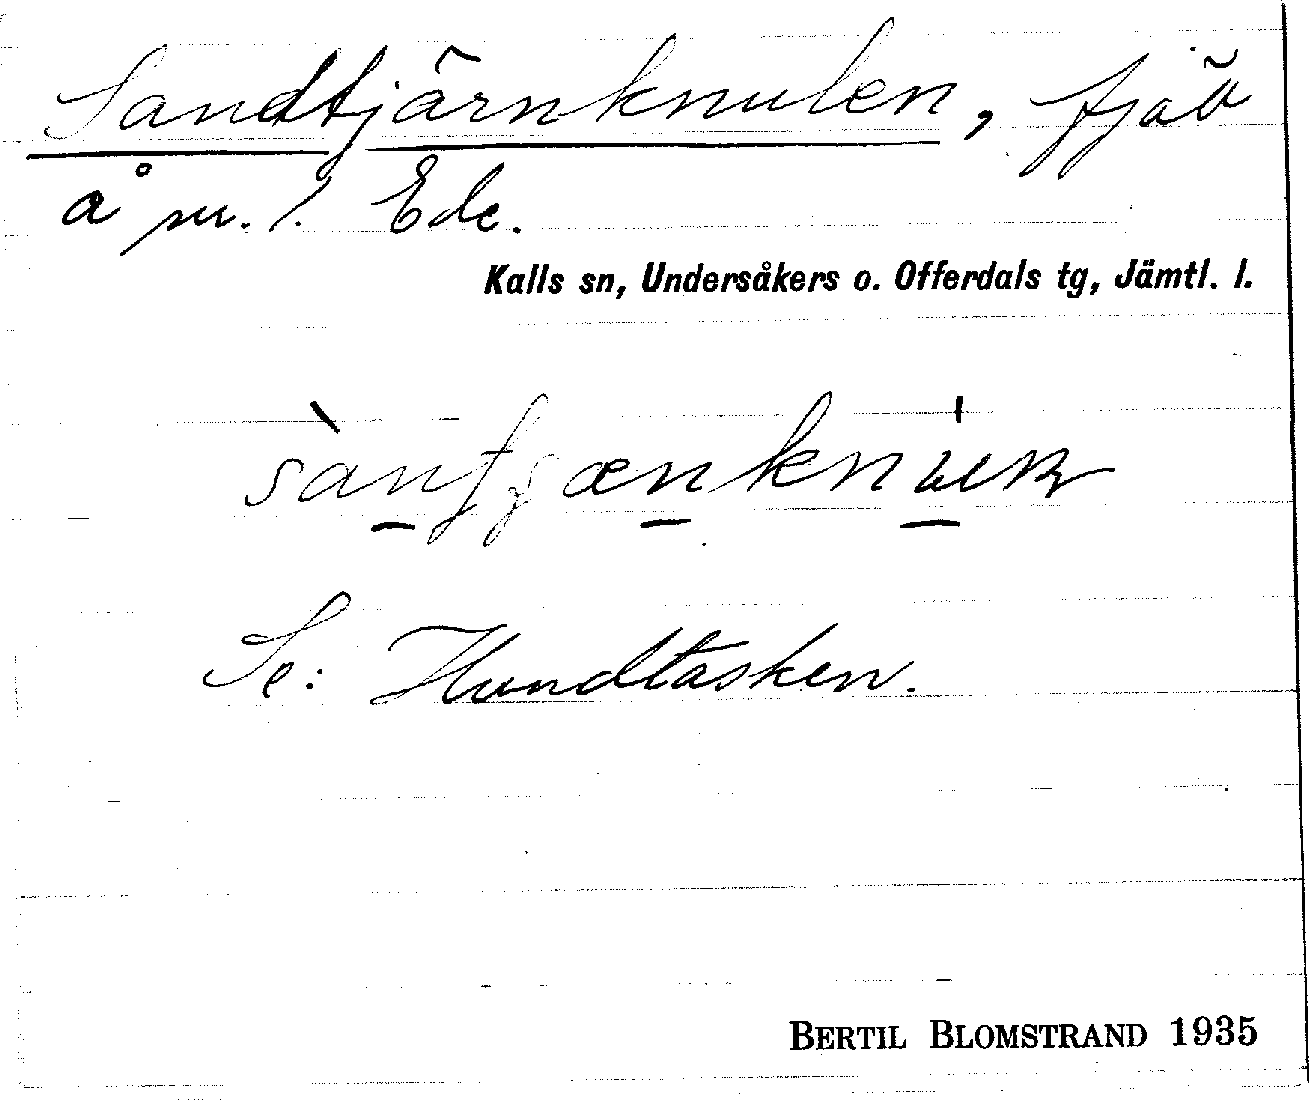 Sandtjärnknulen, fjäll
å nr. 1. Ede.
Kalls sn, Undersåkers o. Offerdals tg, Jämtl. l.
Se: Hundtasken.
BERTIL BLOMSTRAND 1935